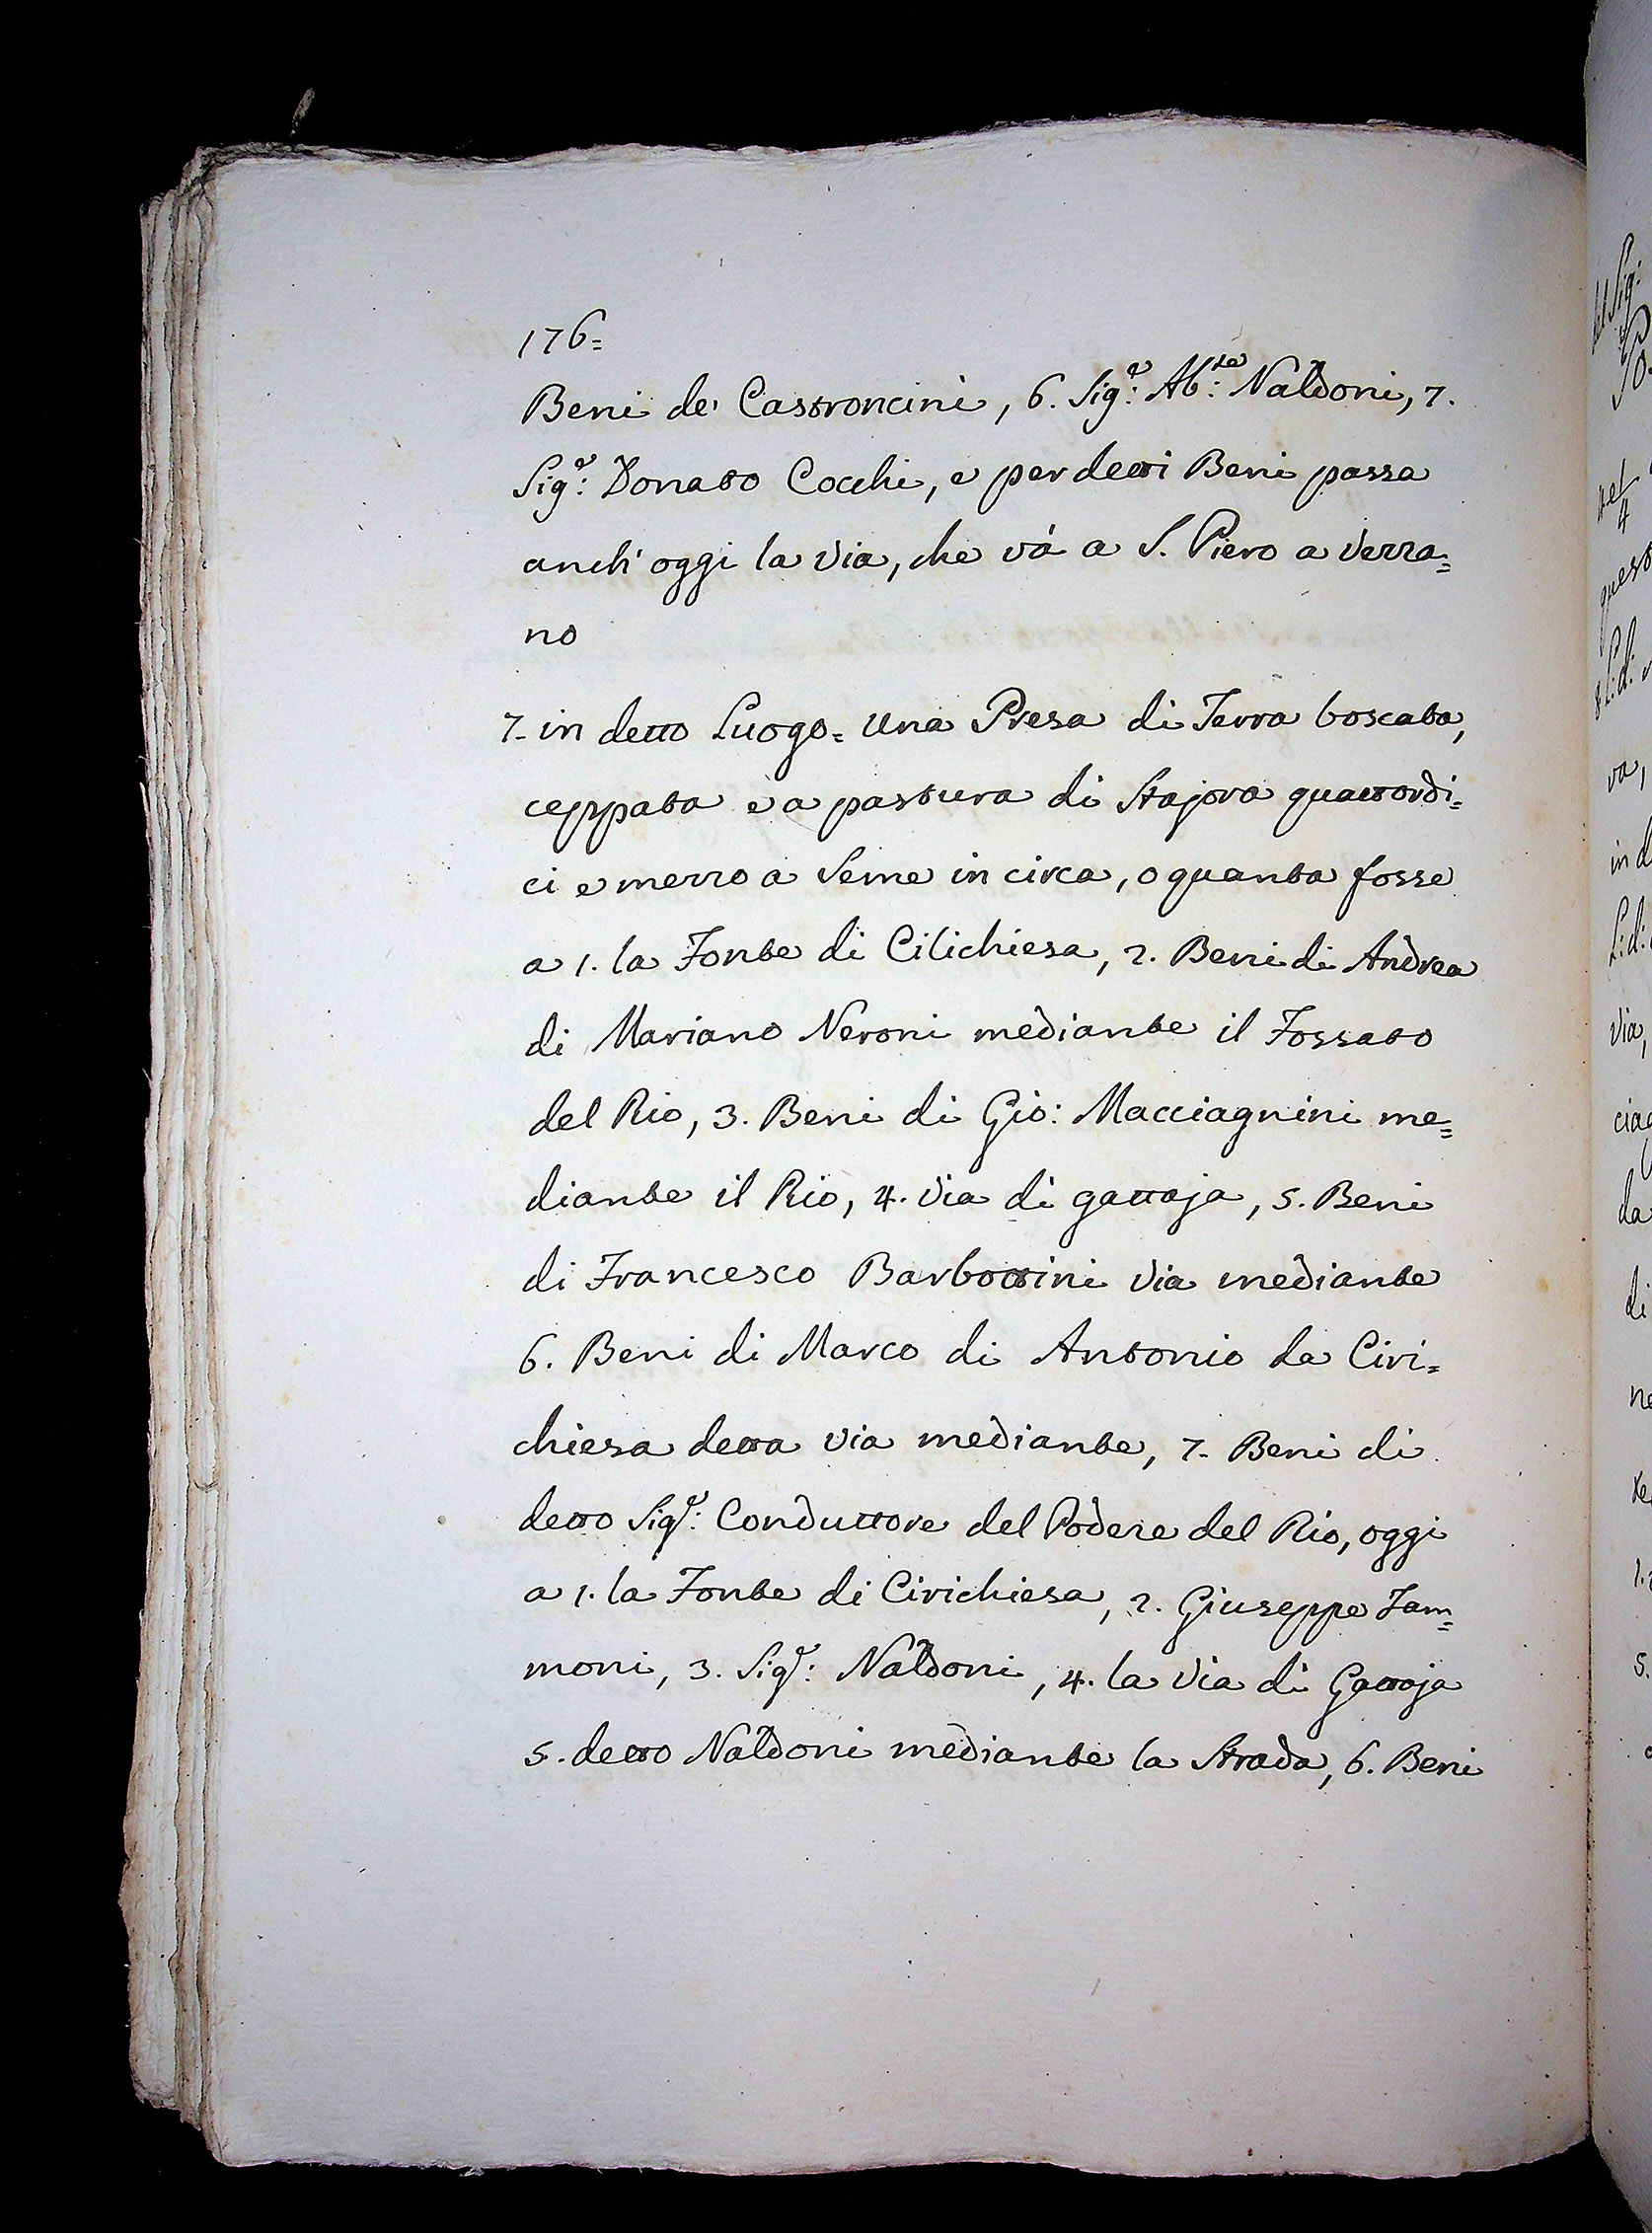 176=
Beni de' Castroncini, 6. Sig.e Ab:te Naldoni, 7.
Sig.e: Donato Cocchi, e per detti Beni passa
anch' oggi la via, che vá a S. Piero a Vezza=
no
7- in detto Luogo= Una Presa di Terra boscata,
ceppata e a pastura di Stajora quattordi=
ci e mezzo a Seme in circa, o quanta fosse
a 1. la Fonte di Cilichiesa, 2. Beni di Andrea
di Mariano Neroni mediante il Fossato
del Rio, 3. Beni di Gio: Macciagnini me=
diante il Rio, 4. Via di gattaja, 5. Beni
di Francesco Barbottini Via mediante
6. Beni di Marco di Antonio da Ciri=
chiesa detta via mediante, 7. Beni di
detto Sig.e: Conduttore del Podere del Rio, oggi
a 1. la Fonte di Cirichiesa, 2. Giuseppe Zam=
moni, 3. Sig.e: Naldoni, 4. la Via di Gattaja
5. detto Naldoni mediante la Strada, 6. Beni